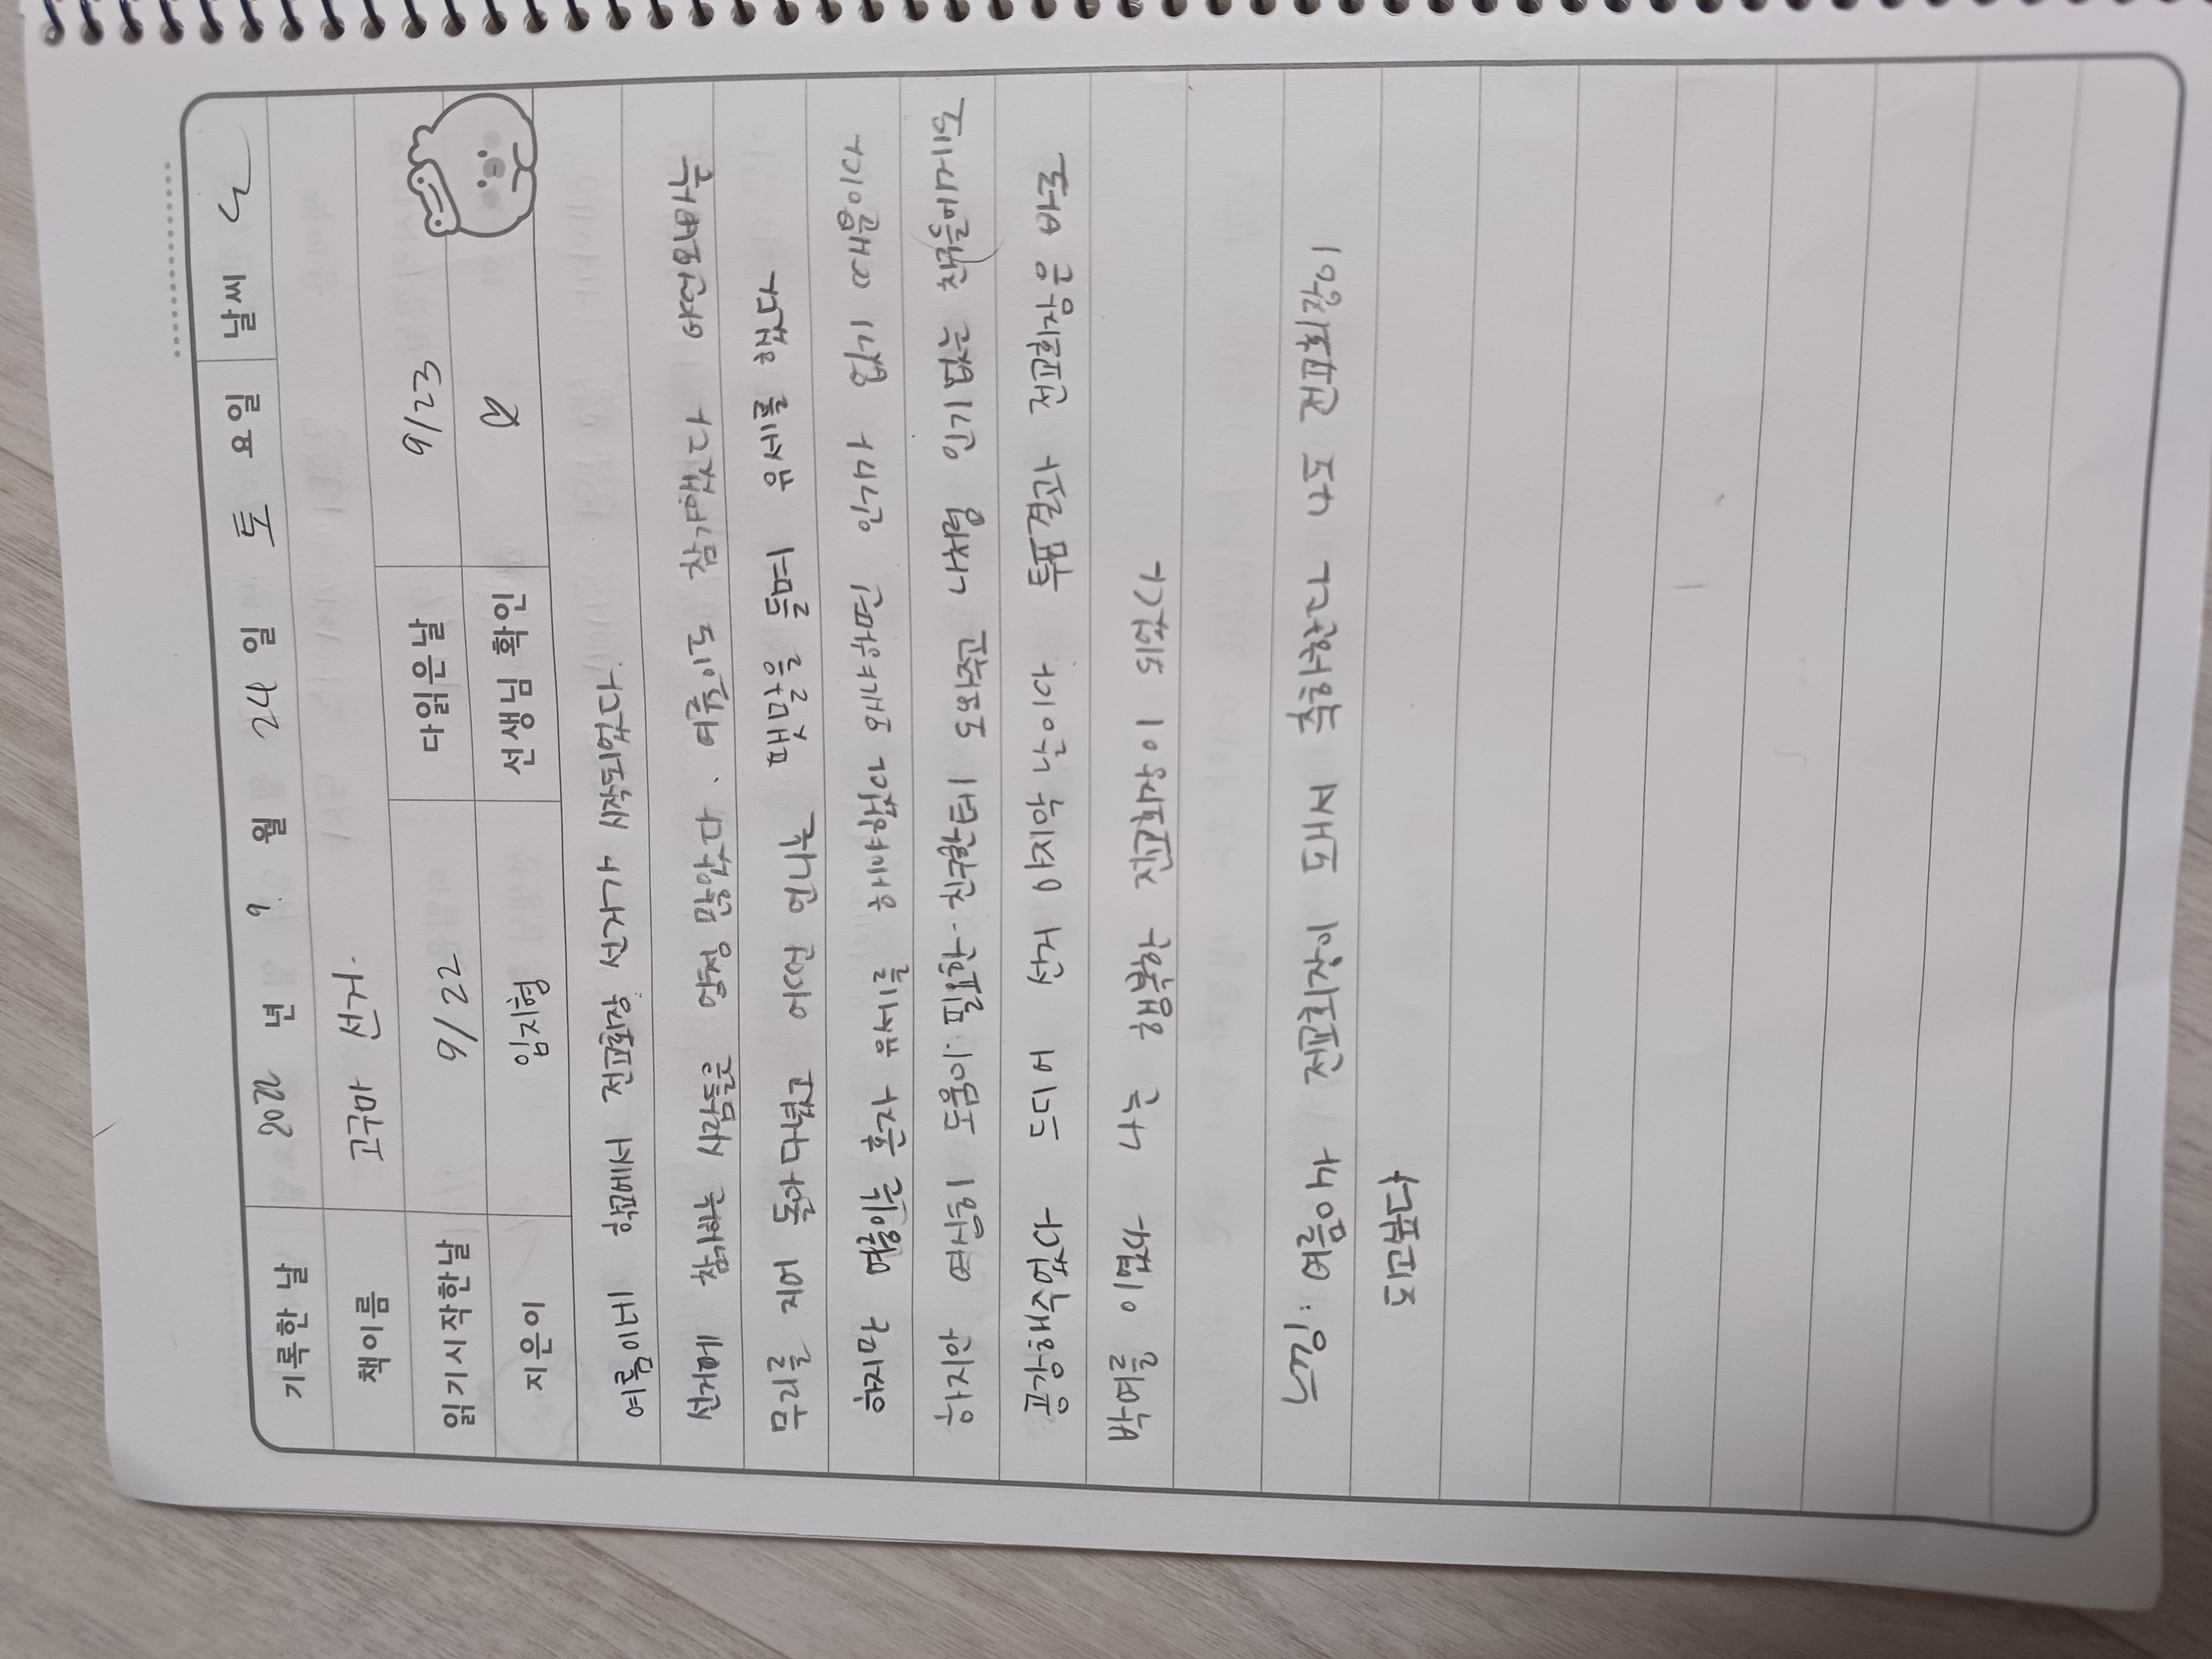 기록한 날 2022 년 9 월 24 일 토 요일 날씨
책이름 고구마 선거.
읽기시작한날 9/22 다읽은날 9/23
지은이 임지형 선생님 확인
여름이네 학교에서 전교회장 선거가 시작되었다.
선거에 참가하는 사람들은 엄청 많았다. 여름이도 참가했다 어떤오빠는
무리를 지어 돌아다녔고 어떤 언니는 팻말을 들며 유세를 했다
하지만 여름이는 혼자 유세를 해야했다 왜냐하면 인기가 없기 때문이다
하지만 열심히 도움이 필요한 친구한테 도와주고 나처럼 인기없는 친구들에게도
공감해주었다 드디어 선거 마지막 날이다 투표결과 전교회장은 바로
박여름 이였다 나는 행복한 전교회장이 되었다
느낌: 여름이가 전교회장이 돼서 축하한다 나도 전교회장이
되고싶다